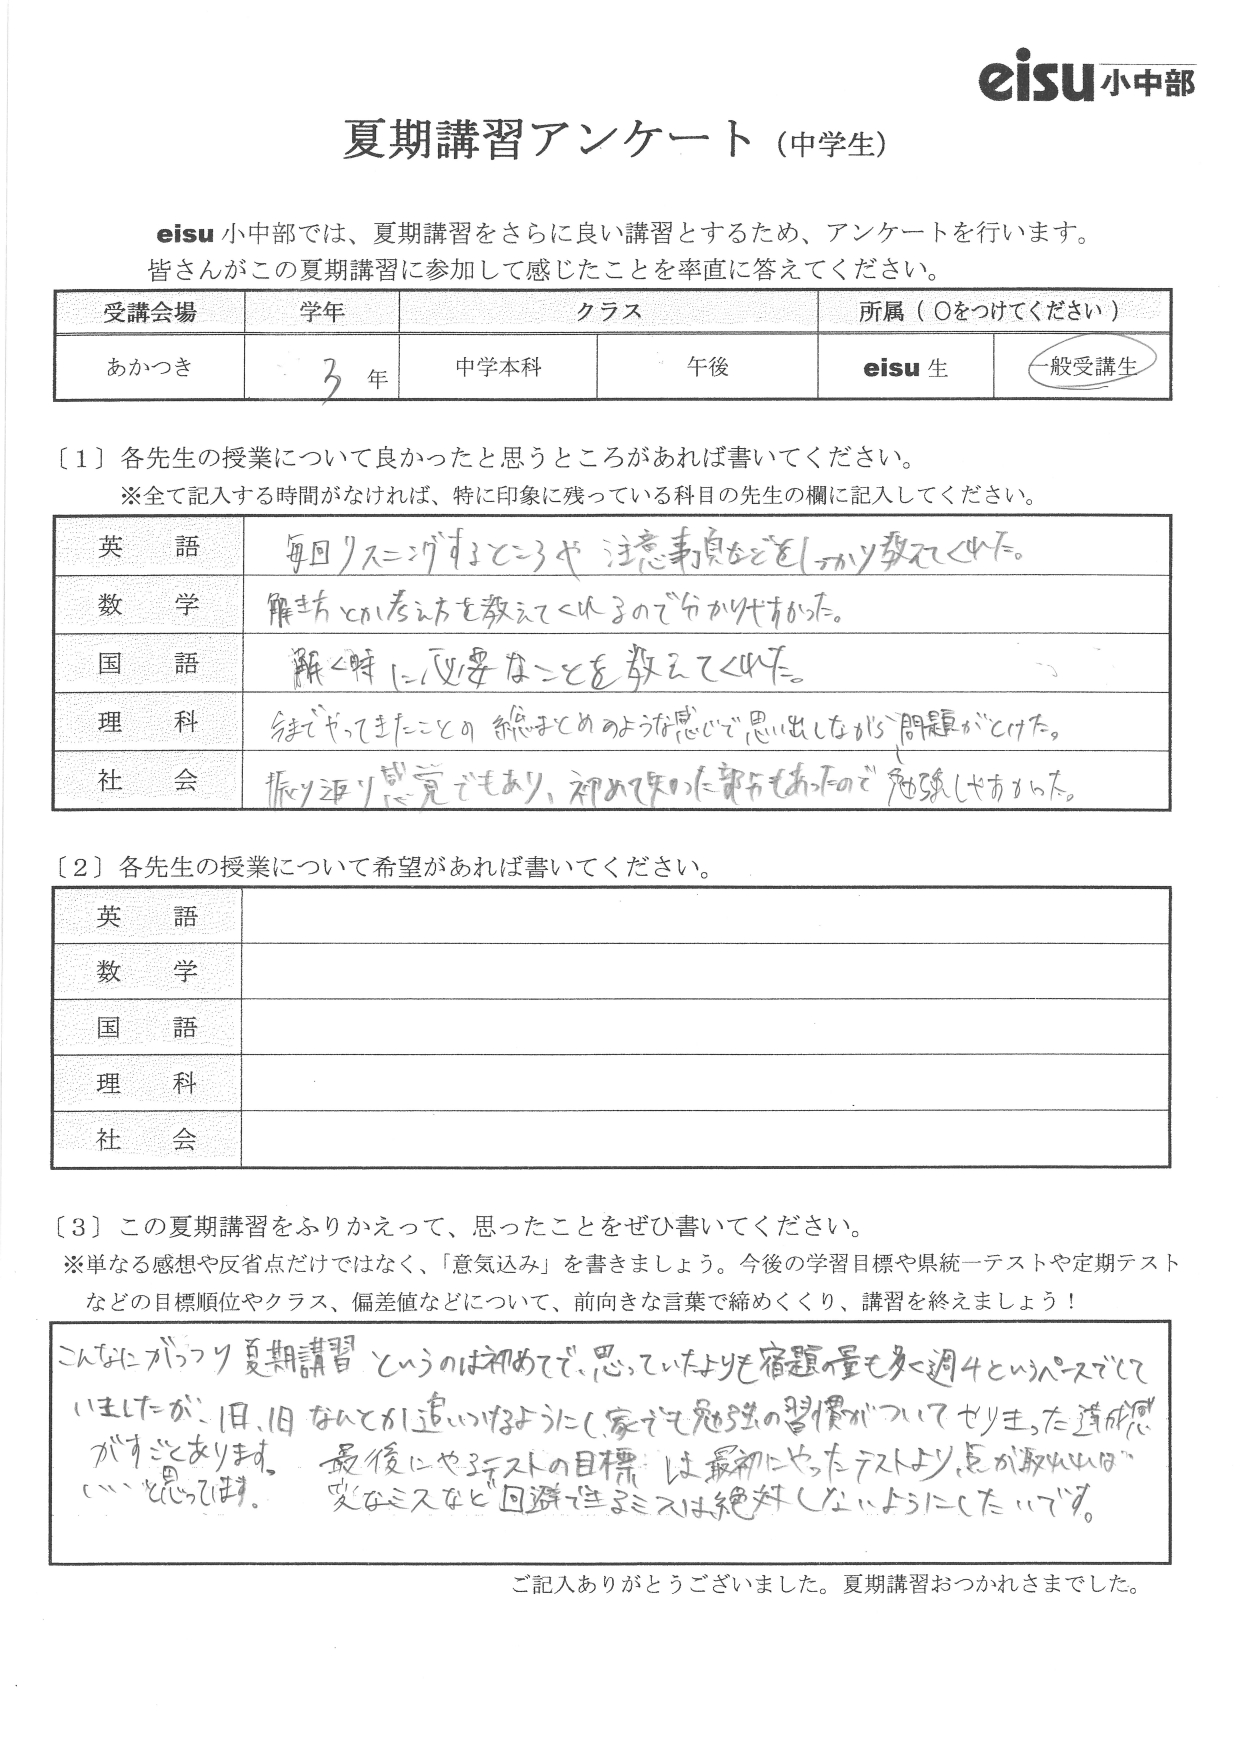 eisu小中部
夏期講習アンケート（中学生）
eisu 小中部では、夏期講習をさらに良い講習とするため、アンケートを行います。
皆さんがこの夏期講習に参加して感じたことを率直に答えてください。
受講会場 学年 クラス 所属（○をつけてください）
あかつき 3 年 中学本科 午後 eisu 生 一般受講生
〔１〕各先生の授業について良かったと思うところがあれば書いてください。
※全て記入する時間がなければ、特に印象に残っている科目の先生の欄に記入してください。
英 語 毎回リスニングするところや 注意事項などをしっかり教えてくれた。
数 学 解き方とか考え方を教えてくれるので分かりやすかった。
国 語 解く時に必要なことを教えてくれた。
理 科 今までやってきたことの総まとめのような感じで思い出しながら問題がとけた。
社 会 振り返り感覚でもあり、初めて知った部分もあったので勉強しやすかった。
〔２〕各先生の授業について希望があれば書いてください。
英 語
数 学
国 語
理 科
社 会
〔３〕この夏期講習をふりかえって、思ったことをぜひ書いてください。
※単なる感想や反省点だけではなく、「意気込み」を書きましょう。今後の学習目標や県統一テストや定期テスト
などの目標順位やクラス、偏差値などについて、前向きな言葉で締めくくり、講習を終えましょう！
こんなにがっつり夏期講習というのは初めてで、思っていたよりも宿題の量も多く週4というペースでして
いましたが、1日、1日なんとか追いつけるようにし、家でも勉強の習慣がついてやりきった達成感
がすごくあります。 最後にやるテストの目標は最初にやったテストより点が取れれば
いいと思ってます。 変なミスなど回避できるミスは絶対しないようにしたいです。
ご記入ありがとうございました。夏期講習おつかれさまでした。